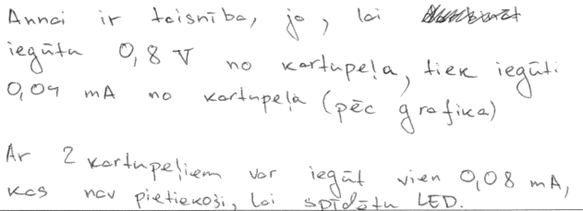 Annai ir taisnība, jo, lai
iegūtu 0,8 V no kartupeļa, tiek iegūti
0,04 mA no kartupeļa (pēc grafika)
Ar 2 kartupeļiem var iegūt vien 0,08 mA,
kas nav pietiekoši, lai spīdētu LED.